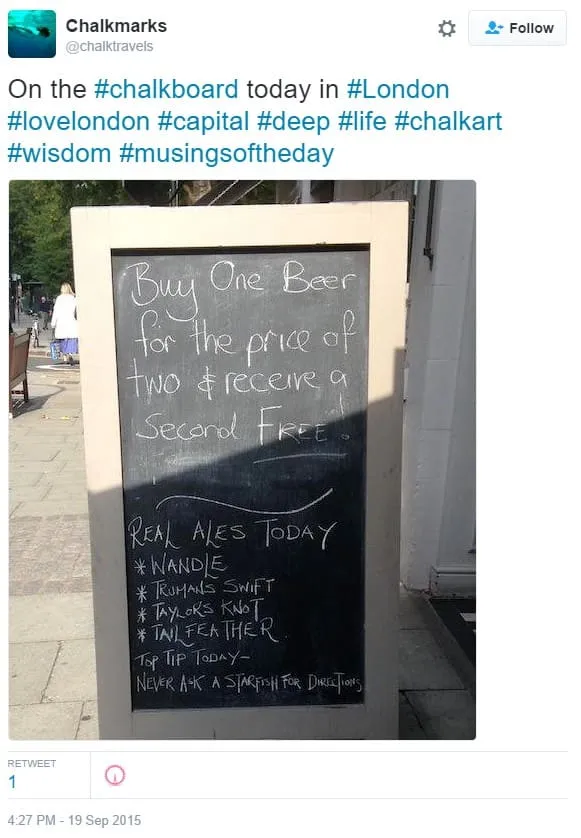 Chalkmarks
@chalktravels
Follow
On the #chalkboard today in #London
#lovelondon #capital #deep #life #chalkart
#wisdom #musingsoftheday
Buy One Beer
for the price of
two & receive a
Second FREE!
REAL ALES TODAY
* WANDLE
* TRUMANS SWIFT
* TAYLORS KNOT
* TAIL FEATHER
TOP TIP TODAY-
NEVER ASK A STARFISH FOR DIRECTIONS
RETWEET
1
4:27 PM - 19 Sep 2015